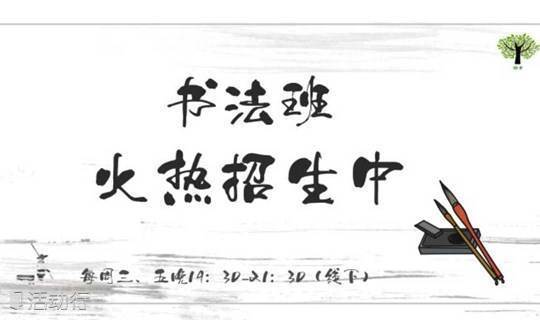 书法班
火热招生中
每周三、五晚19：30-21：30（线下）
活动行